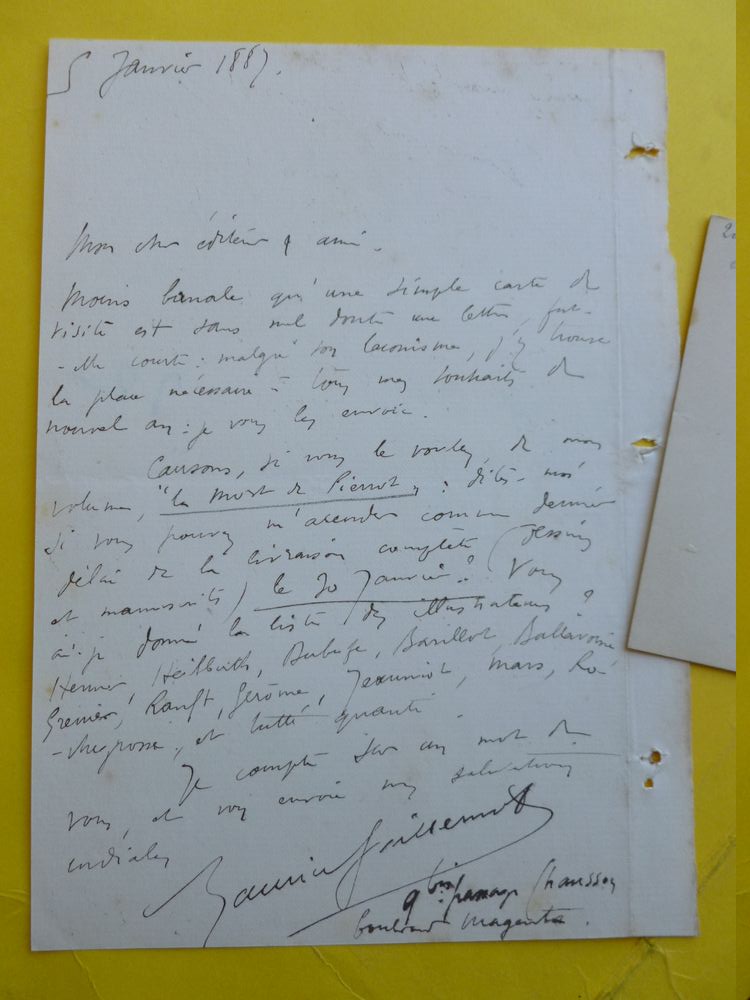 5 Janvier 1887.
Mon cher éditeur & ami.
Moins banale qu'une simple carte de
visite est sans nul doute une lettre, fut-
-elle courte : malgré son laconisme, j'y trouve
la place nécessaire à tous mes souhaits de
nouvel an : je vous les envoie.
Causons, si vous le voulez, de mon
volume, "la mort de Pierrot" : dites-moi
si vous pouvez m'accorder comme dernier
délai de la livraison complète (dessins
et manuscrits) le 30 Janvier ? Vous
ai-je donné la liste des illustrateurs ?
Henner, Heilbuth, Dubufe, Barillot, Ballavoine
Grenier, Ranft, Gérôme, Jeanniot, Mars, Ro-
-chegrosse, et tutti quanti.
Je compte sur un mot de
vous, et vous envoie mes salutations
cordiales
Maurice Guillemot
9 bis passage Chausson
boulevard Magenta.